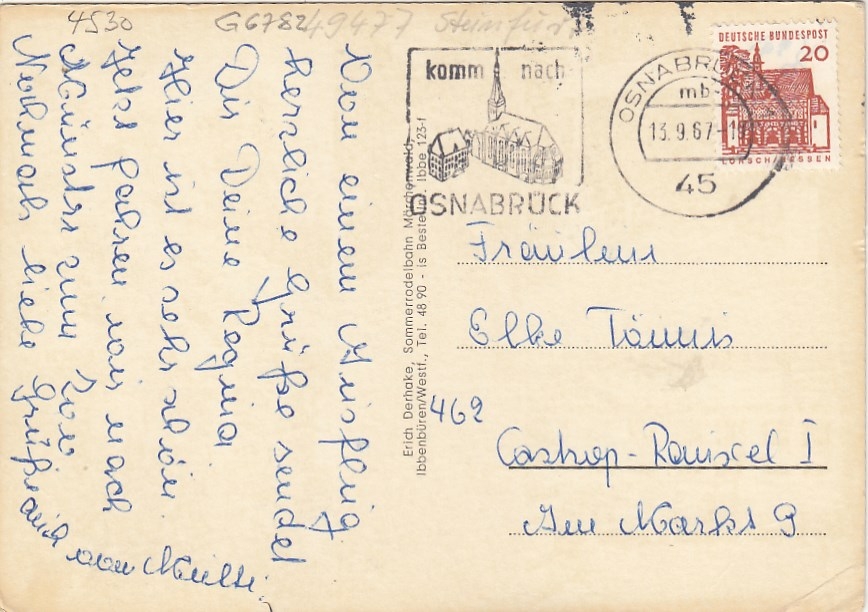 4530
G6782
49477 Steinfurt
Von einem Ausflug
herzliche Grüße sendet
Dir Deine Regina
Hier ist es sehr schön.
Jetzt fahren wir nach
Münster zum Zoo
Nochmals liebe Grüße auch von Mutti.
Erich Derhake, Sommerrodelbahn Märchenwald,
Ibbenbüren/Westf., Tel. 48 90 - Is Bestell-Nr. Ibbe 123-f
komm nach
OSNABRÜCK
OSNABRÜCK
mb
13.9.67-19
45
DEUTSCHE BUNDESPOST
20
LORSCH/HESSEN
Fräulein
Elke Tönnis
462
Castrop-Rauxel I
Am Markt 9